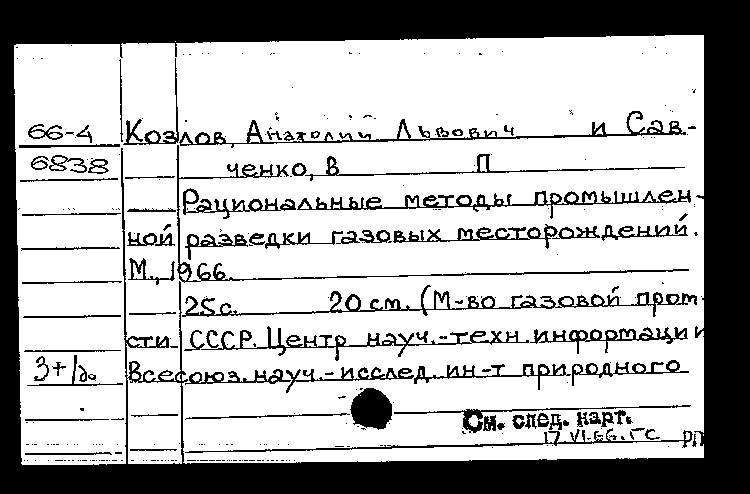 66-4 Козлов, Анатолий Львович и Сав-
6838 ченко, В П
Рациональные методы промышлен-
ной разведки газовых месторождений.
М., 1966.
25с. 20 см. (М-во газовой пром-
сти СССР. Центр науч.-техн. информации
Всесоюз. науч.-исслед. ин-т природного
См. след. карт.
17.VI.66. ГС РП